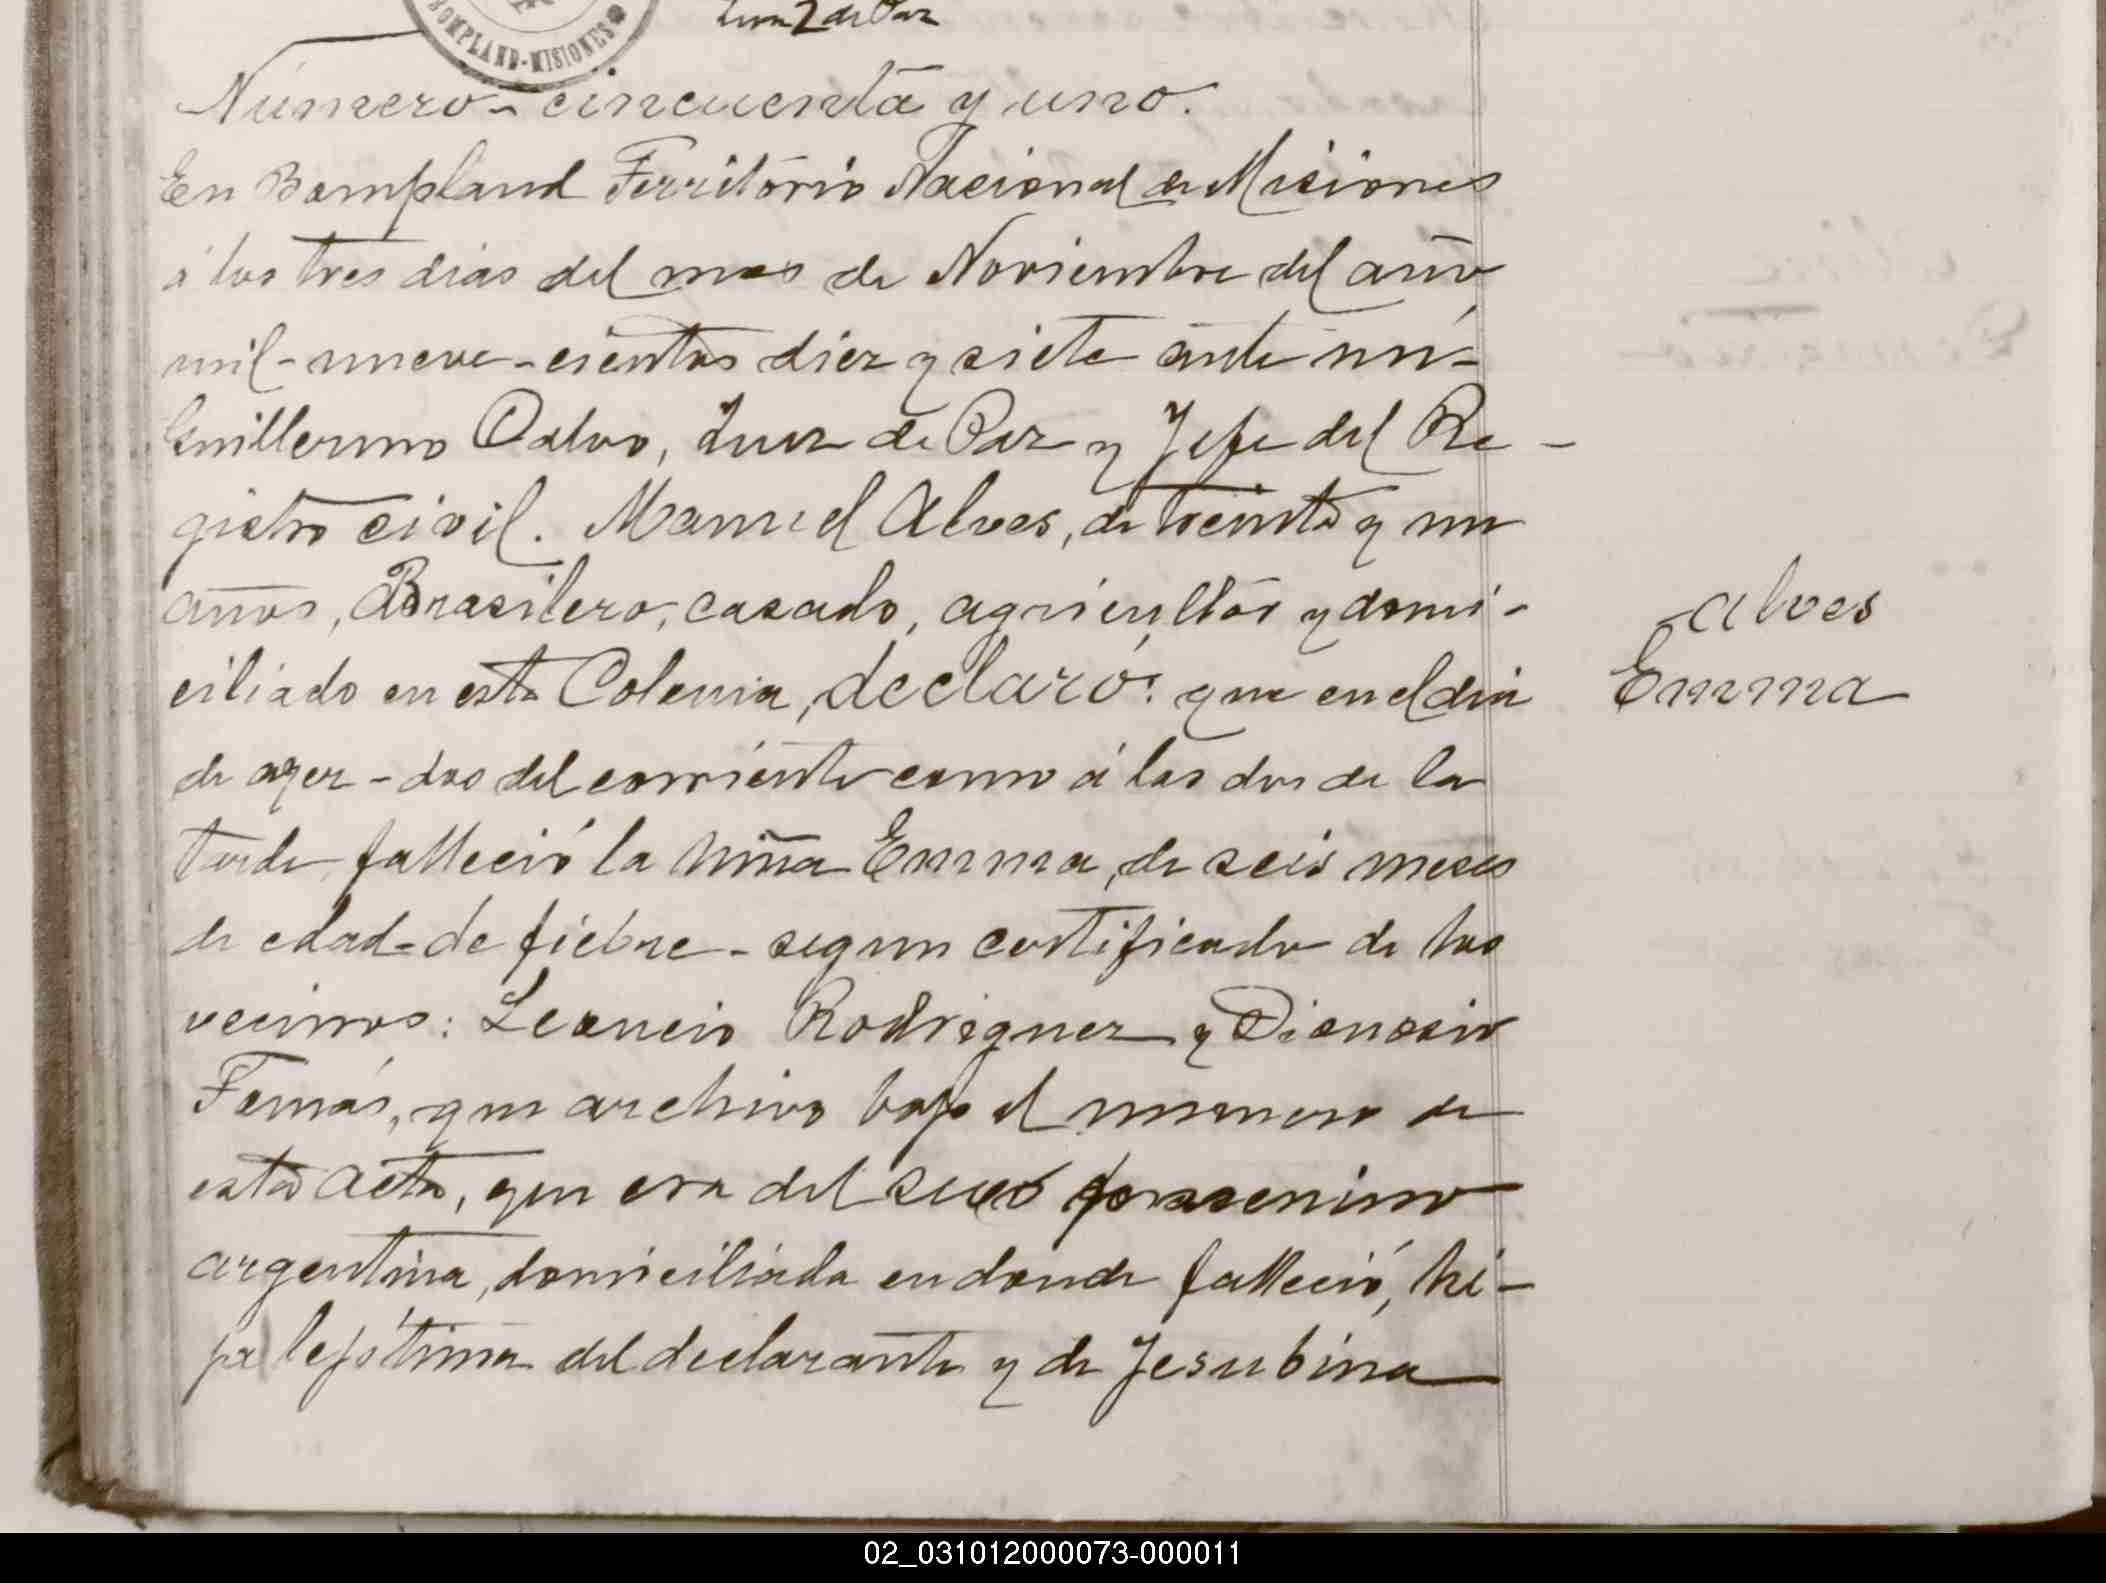 Juez de Paz
BOMPLAND-MISIONES
Número - cincuenta y uno.
En Bompland Territorio Nacional de Misiones
á los tres dias del mes de Noviembre del año
mil - nueve - cientos diez y siete ante mi -
Guillermo Calvo, Juez de Paz y Jefe del Re -
gistro civil. Manuel Alves, de treinta y un
años, Brasilero, casado, agricultor y domi -
ciliado en esta Colonia, declaró: que en el dia
de ayer - dos del corriente como á las dos de la
tarde, falleció la niña Emma, de seis meses
de edad - de fiebre - segun certificado de los
vecinos: Leoncio Rodriguez y Dionosio
Tomás, que archivo bajo el numero de
esta acta, que era del sexo femenino
argentina, domiciliada en donde falleció, hi -
ja lejitima del declarante y de Jesubina
Alves
Emma
02_031012000073-000011